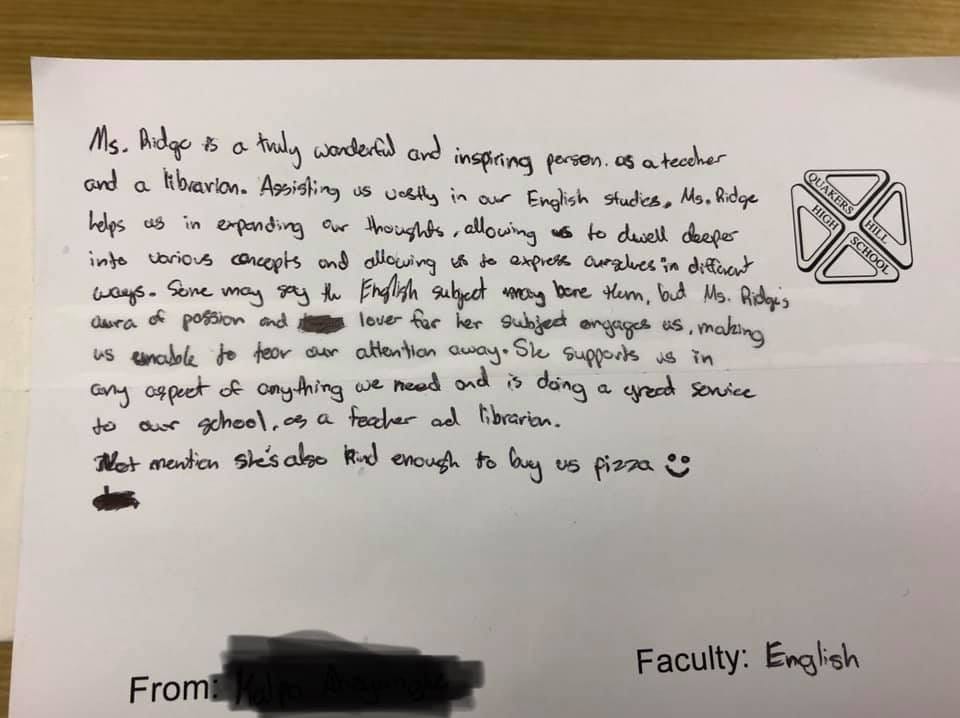 Ms. Ridge is a truly wonderful and inspiring person. as a teacher
and a librarian. Assisting us vastly in our English studies, Ms. Ridge
helps us in expanding our thoughts, allowing us to dwell deeper
into various concepts and allowing us to express ourselves in different
ways. Some may say the English subject may bore them, but Ms. Ridge's
aura of passion and lover for her subject engages us, making
us unable to tear our attention away. She supports us in
any aspect of anything we need and is doing a great service
to our school, as a teacher ad librarian.
Not mention she's also kind enough to buy us pizza
QUAKERS
HILL
HIGH
SCHOOL
From:
Faculty: English